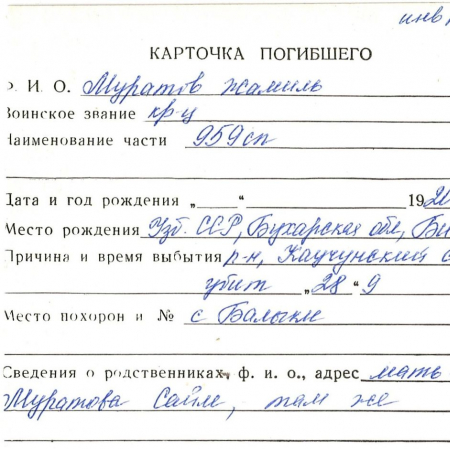 инв
КАРТОЧКА ПОГИБШЕГО
Ф. И. О. Муратов Жамиль
Воинское звание кр-ц
Наименование части 959сп
Дата и год рождения „ “ 192
Место рождения Узб. ССР, Бухарская обл,
Причина и время выбытия р-н, Каучунский с
убит „28“ 9
Место похорон и № с Балыки
Сведения о родственниках, ф. и. о., адрес мать
Муратова там же